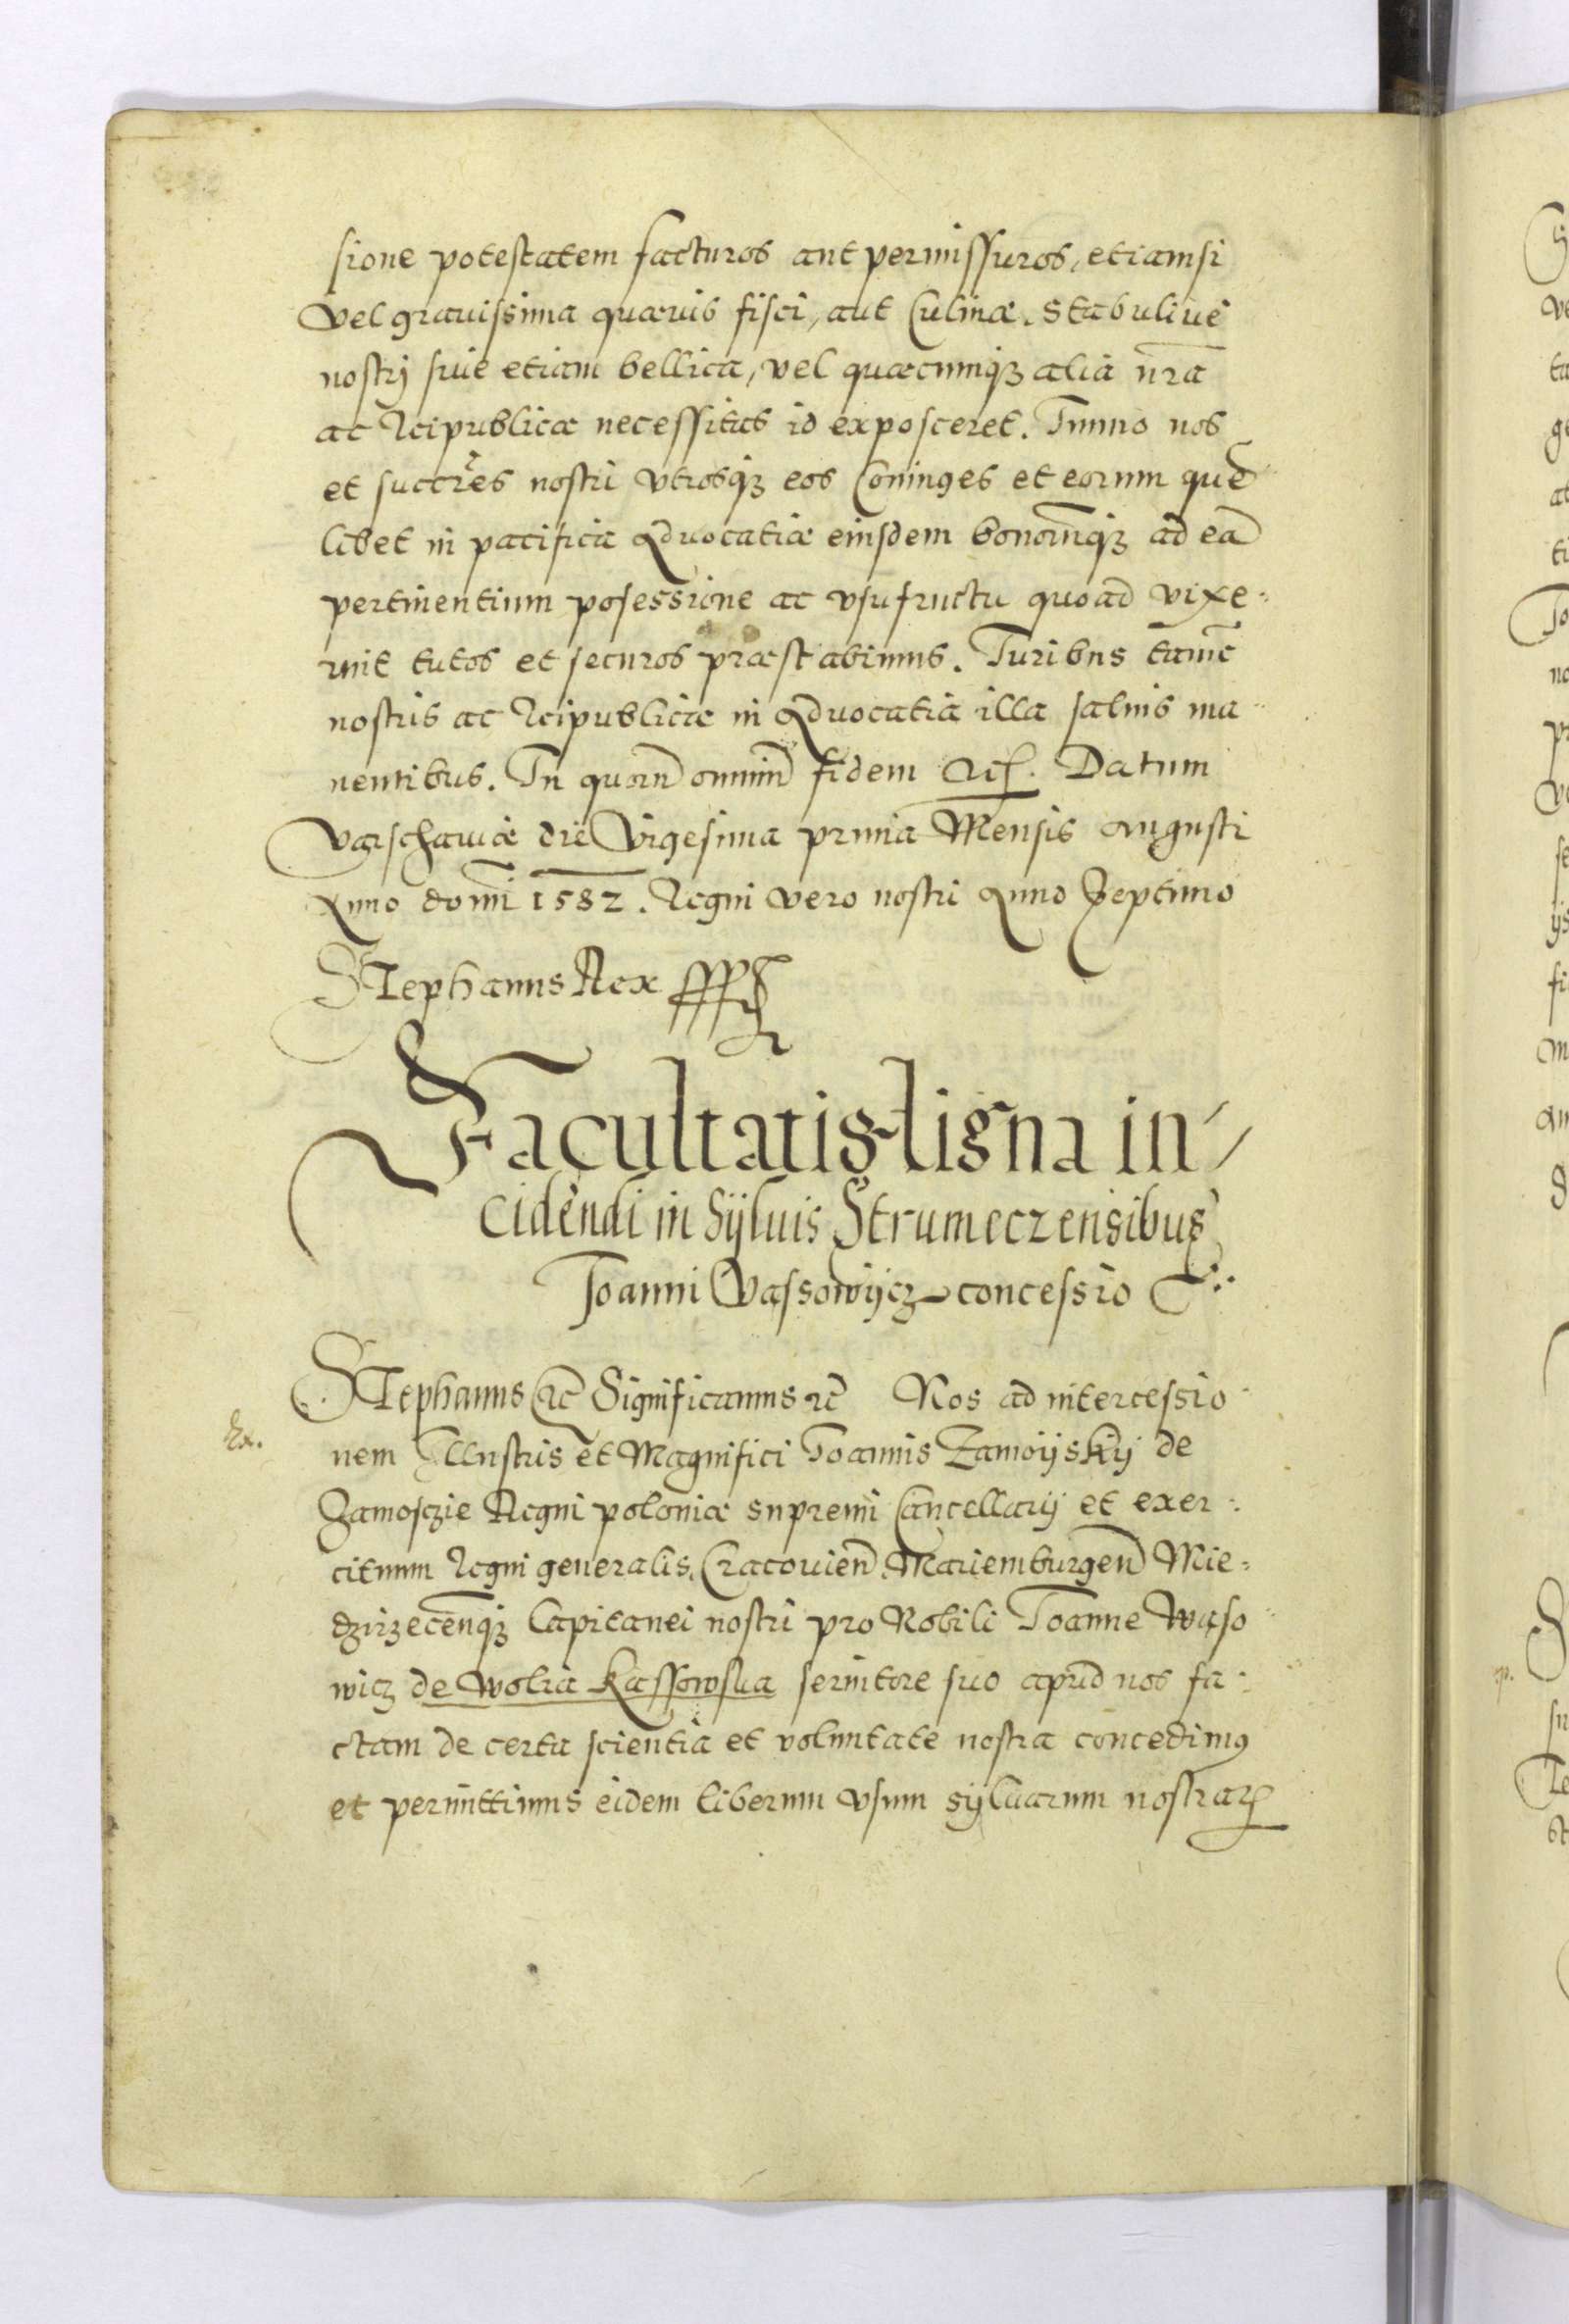 sione potestatem facturos aut permissuros, etiamsi
vel grauissima quæuis fisci, aut Culinæ. Stabuliue
nostrj siue etiam bellica, vel quæcumqꝫ alia nr̄a
ac Reipublicæ necessitas id exposceret. Immo nos
et succr̄es nostri vtrosqꝫ eos Coniuges et eorum quē
libet in pacifica Aduocatiæ eiusdem bonorūqꝫ ad eā
pertinentium posessione ac vsufructu quoad vixe-
rint tutos et securos præstabimus. Iuribus tamē
nostris ac Reipublicæ in Aduocatia illa saluis ma-
nentibus. In quorū omniū fidem etc. Datum
Varschauiæ die Vigesima prima Mensis Augusti
Anno domī 1582. Regni vero nostri Anno Septimo
Stephanus Rex
Facultatis ligna in-
cidendi in Syluis Strumeczensibus
Ioanni Vassowycz concessio
Stephanus etc Significamus etc Nos ad intercessio-
Ex.
nem Illustris et Magnifici Joannis Zamoysky de
Zamosczie Regni poloniæ supremi Cancellarij et exer-
cituum Regni generalis, Cracovien̄ Mariemburgen̄ Mie-
dzirzecēnqꝫ Capitanei nostri pro Nobili Joanne Waso
wicz de Wolia Kassowska seruitore suo apud nos fa-
ctam de certa scientia et voluntate nostra concedimꝰ
et permittimus eidem liberum vsum syluarum nostraꝝ